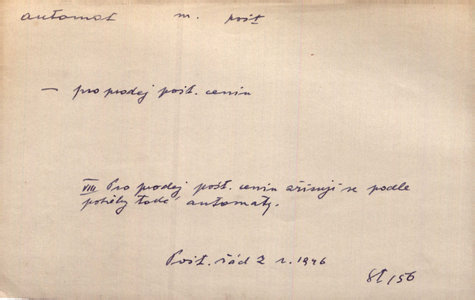 automat m. pošt
— pro prodej pošt. cenin
VIII Pro prodej pošt. cenin zřizují se podle
potřeby také automaty.
Pošt. řád z r. 1946
/56